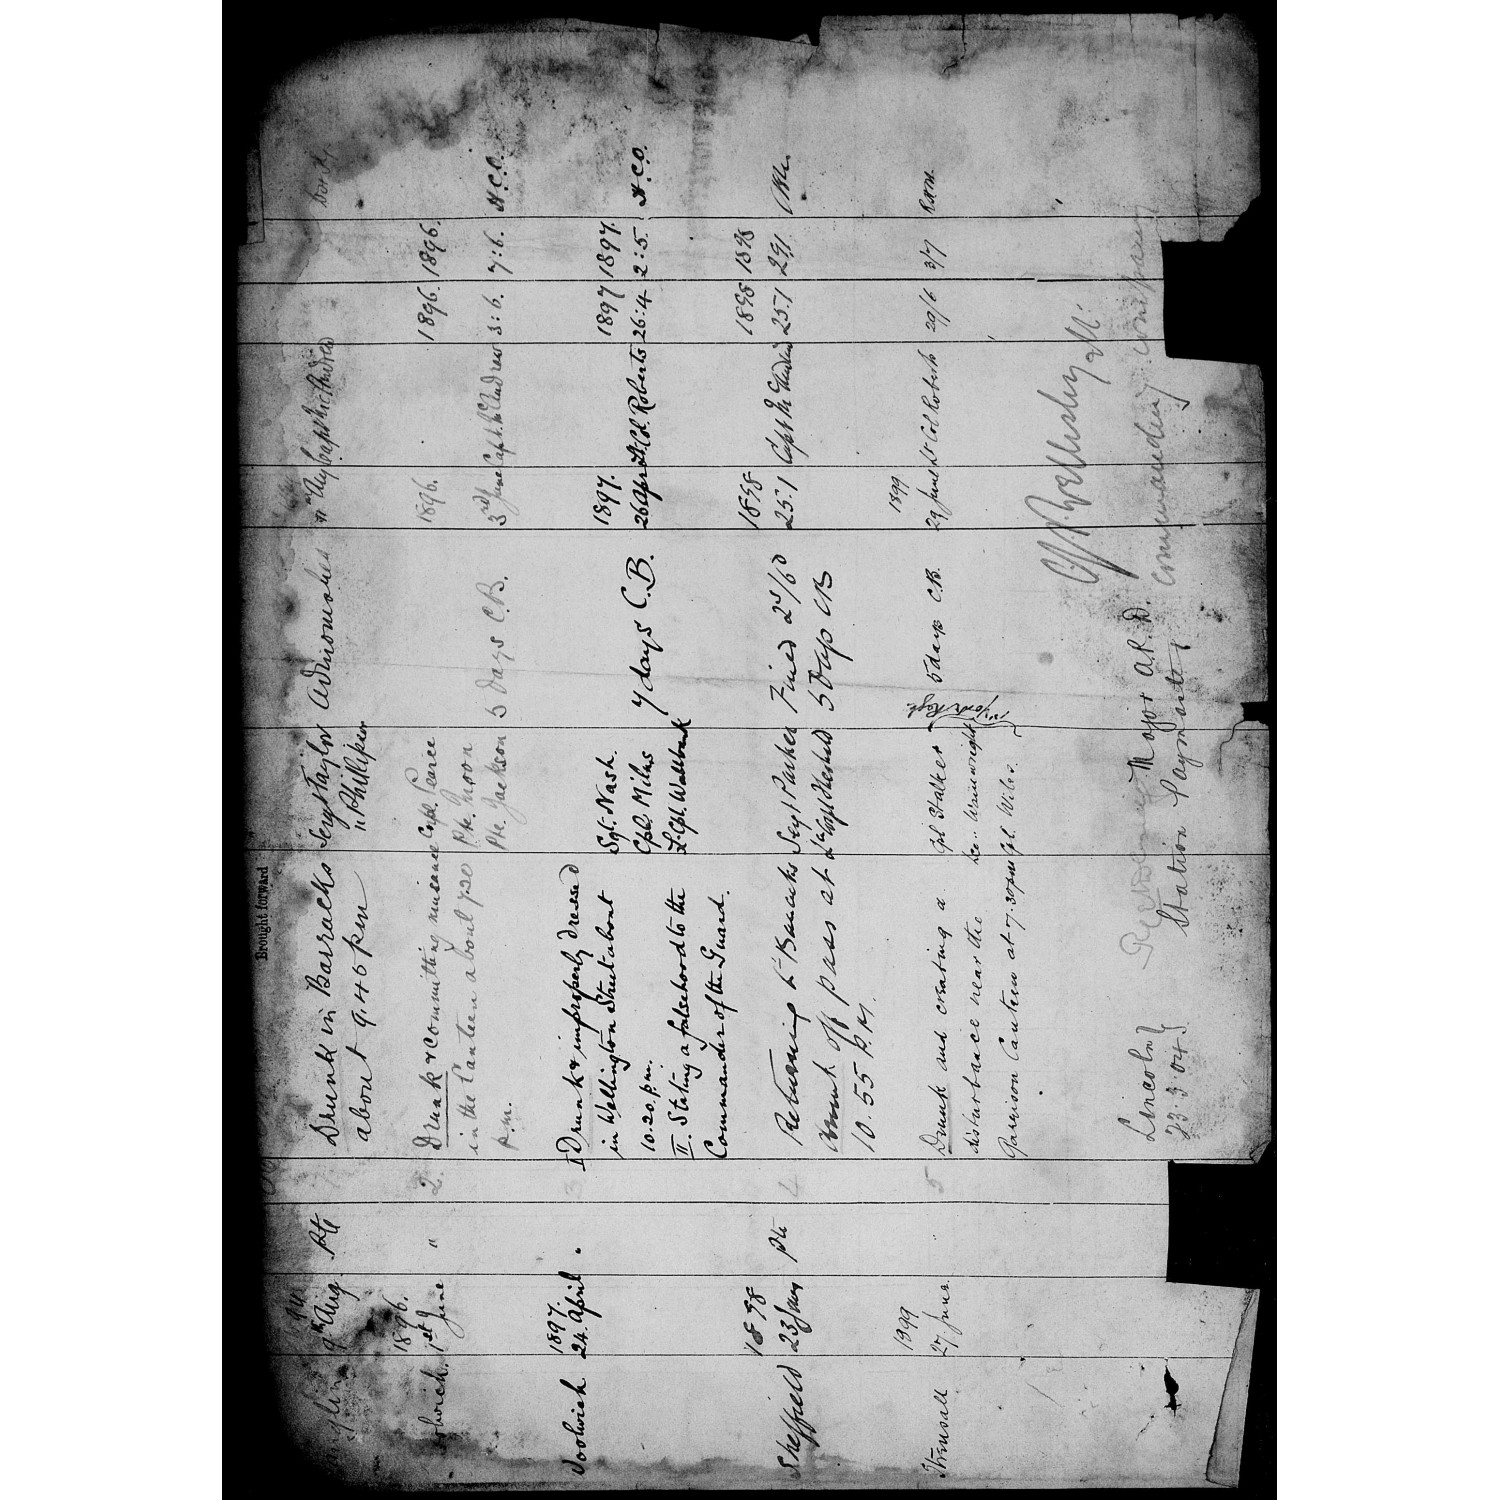 Brought forward
9th Aug. Pte Drunk in Barracks Sergt Taylor Admonished
about 9.45 pm " Phillipson
1896. 1896. 1896. 1896.
Woolwich. 1st June " 2. Drunk & committing nuisance Corpl. Pearce
in the Canteen about 7.20 Pte. Noon
p.m. Pte. Jackson 5 days C.B. 3rd June Capt. McAndrew 3:6. 7:6. H.C.O.
1897. 1897. 1897 1897.
Woolwich 24. April " 3 I Drunk & improperly dressed
in Wellington Street about Sgt. Nash.
10.20. p.m. Cpl. Milns 7 days C.B. 26 Apr Lt. Col. Roberts 26:4 2:5. H.C.O.
II. Stating a falsehood to the L. Cpl. Wallbank
Commander of the Guard.
1898 1898 1898 1898
Sheffield 23 Jany Pte 4 Returning to Barracks Sergt Parker Fined 2s/6d 25.1 Capt 25.1 29.1
drunk off pass at 5 Days CB
10.55 P.M.
1899 1899
Strensall 27 June. 5 Drunk and creating a Cpl Stalker 5 days C.B. 29 June Lt Col Roberts 29/6 3/7
disturbance near the Wainwright York Regt
Garrison Canteen at 7.30pm
Lincoln } Major A.P.D.
23.3.04 } Station Paymaster
Commanding Company